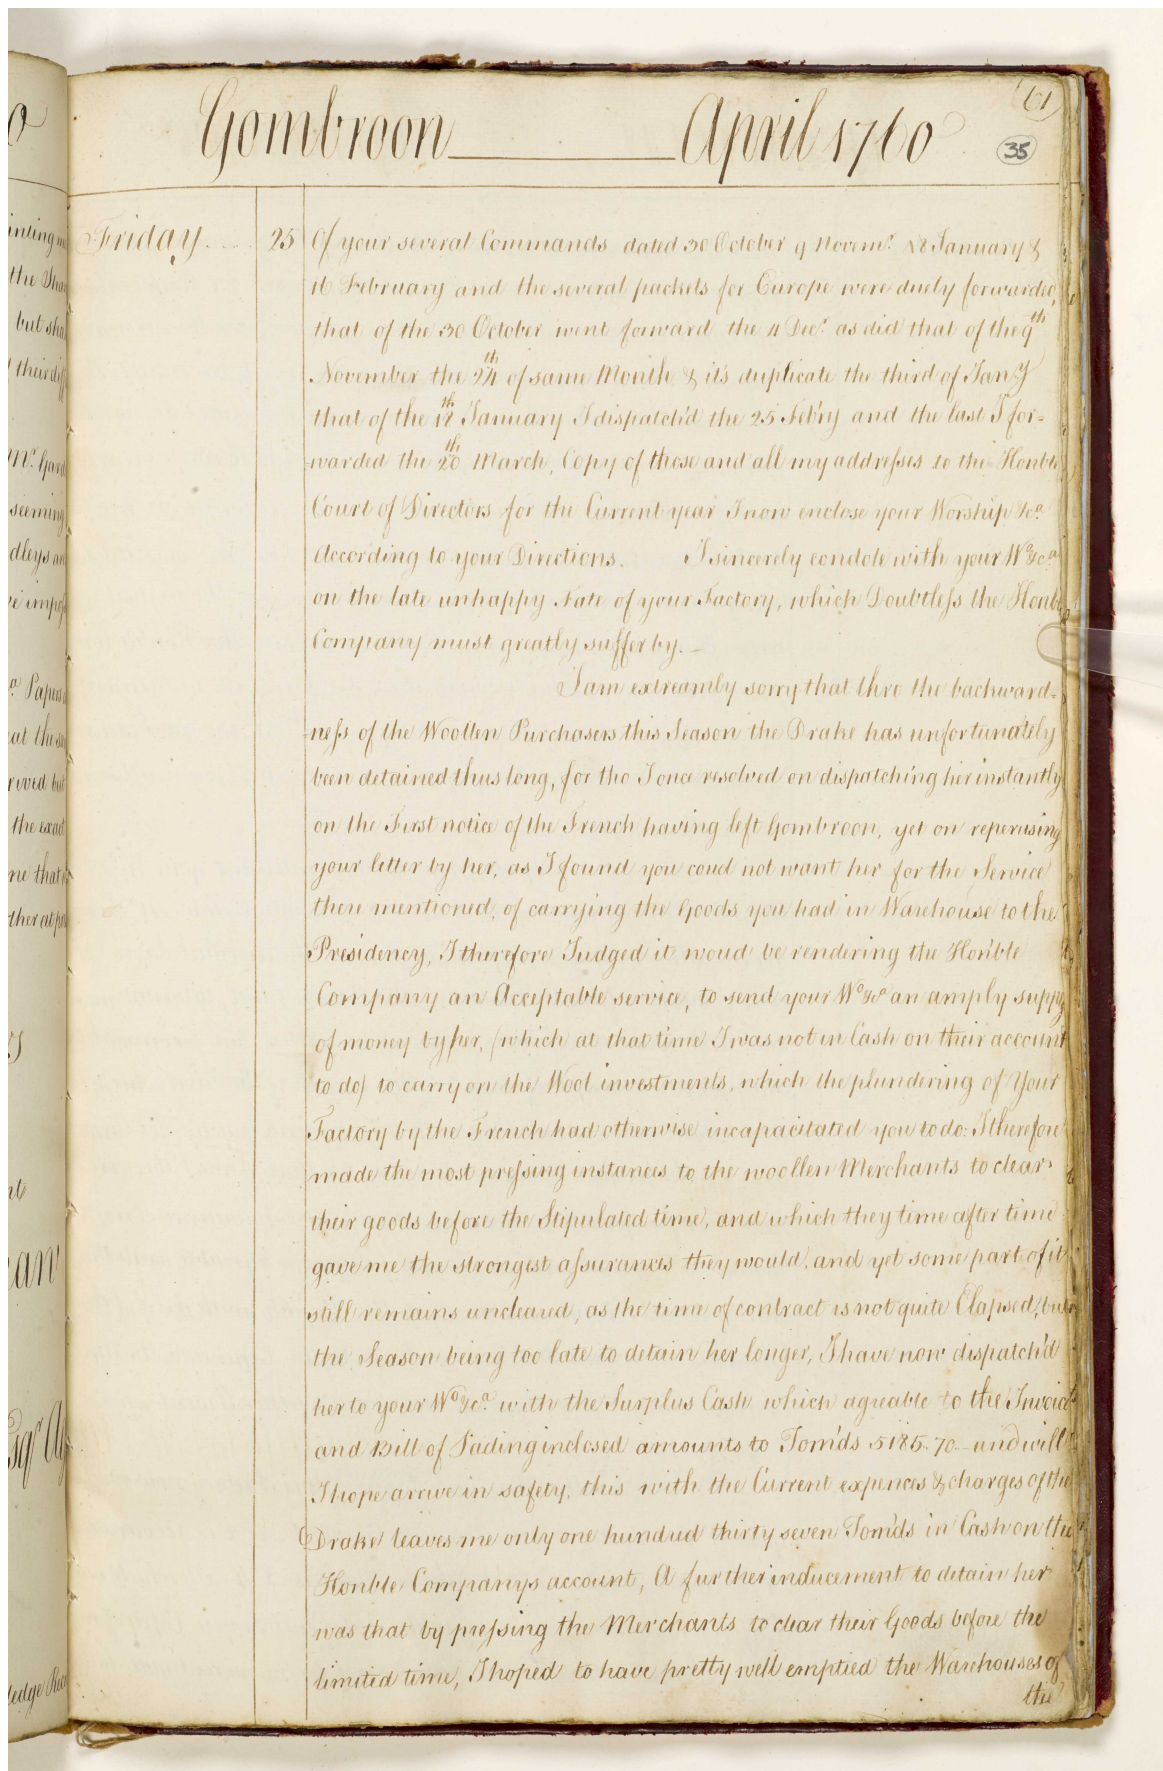 61
Gombroon April 1760
35
Friday 25 Of your several Commands dated 30 October 9 Novemr. 18 January &
16 February and the several packets for Europe were duely forwarded,
that of the 30 October went forward the 4 Decr. as did that of the 9th
November the 24th of same Month & it's duplicate the third of Jany
that of the 18th January I dispatch'd the 25 Feb'ry and the last I for-
-warded the 20th March, Copy of those and all my addresses to the Honble
Court of Directors for the Current year I now enclose your Worship &ca.
According to your Directions. I sincerely condole with your Wo. &ca
on the late unhappy Fate of your Factory, which Doubtless the Honble
Company must greatly suffer by. —
I am extreamly sorry that thro the backward-
-ness of the Woollen Purchasers this Season the Drake has unfortunately
been detained thus long, for tho I once resolved on dispatching her instantly
on the First notice of the French having left Gombroon, yet on reperusing
your letter by her, as I found you coud not want her for the Service
there mentioned, of carrying the Goods you had in Warehouse to the
Presidency, I therefore Judged it woud be rendering the Hon'ble
Company an Acceptable service, to send your Wo. &ca an amply supply
of money by her, (which at that time I was not in Cash on their account
to do) to carry on the Wool investments, which the plundering of Your
Factory by the French had otherwise incapacitated you to do: I therefore
made the most pressing instances to the woollen Merchants to clear
their goods before the Stipulated time, and which they time after time
gave me the strongest assurances they would, and yet some part of it
still remains uncleared, as the time of contract is not quite Elapsed, but
the Season being too late to detain her longer, I have now dispatch'd
her to your Wo. &ca. with the Surplus Cash which agreable to the Invoice
and Bill of Lading inclosed amounts to Tom'ds 5185.70 — and will
I hope arrive in safety, this with the Current expences & charges of the
Drake leaves me only one hundred thirty seven Tom'ds in Cash on the
Honble Companys account, A further inducement to detain her
was that by pressing the Merchants to clear their Goods before the
limited time, I hoped to have pretty well emptied the Warehouses of
the